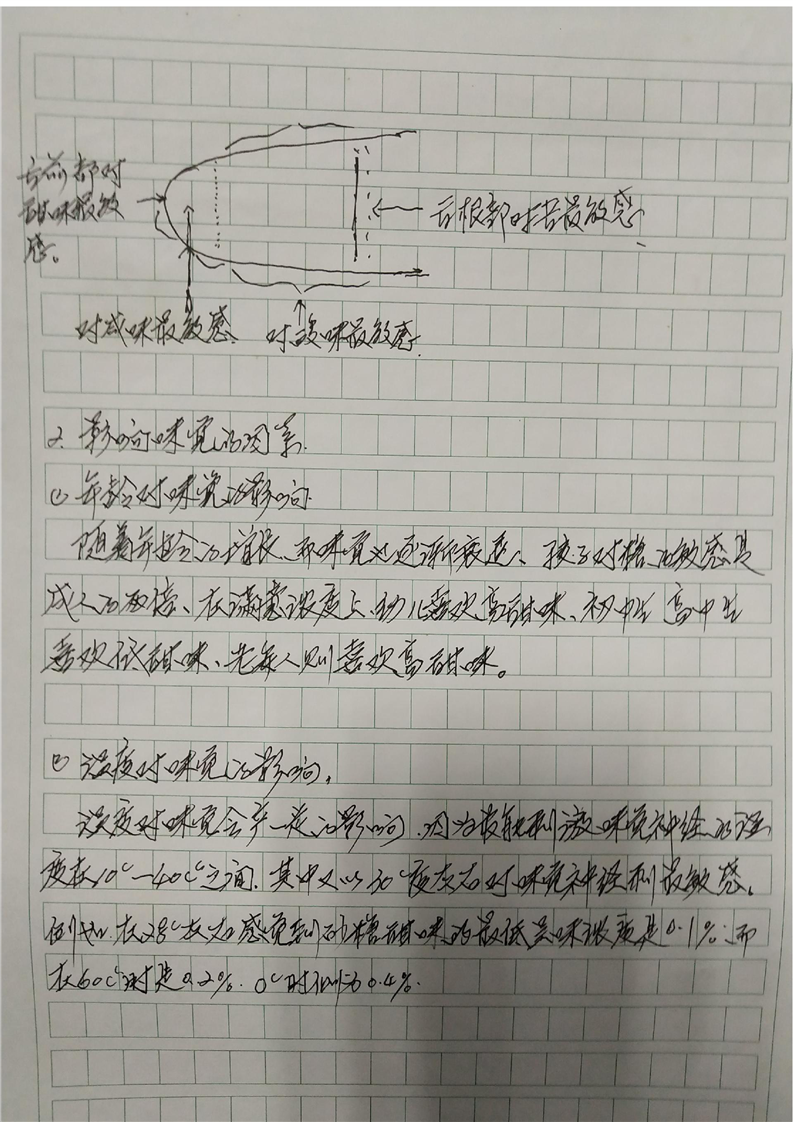 舌前部对
甜味最敏
感。
舌根部对苦最敏感
对咸味最敏感
对酸味最敏感
2. 影响味觉的因素
① 年龄对味觉的影响
随着年龄的增长、而味觉也逐渐衰退、孩子对糖的敏感是
成人的两倍、在满意浓度上幼儿喜欢高甜味、初中生高中生
喜欢低甜味、老年人则喜欢高甜味。
② 温度对味觉的影响,
温度对味觉会产一定的影响.因为最能刺激味觉神经的温
度在10℃—40℃之间.其中又以30℃度左右对味觉神经刺最敏感。
例如.在28℃左右感觉到砂糖甜味的最低呈味浓度是0.1%;而
在60℃时是0.2%.0℃时则为0.4%.